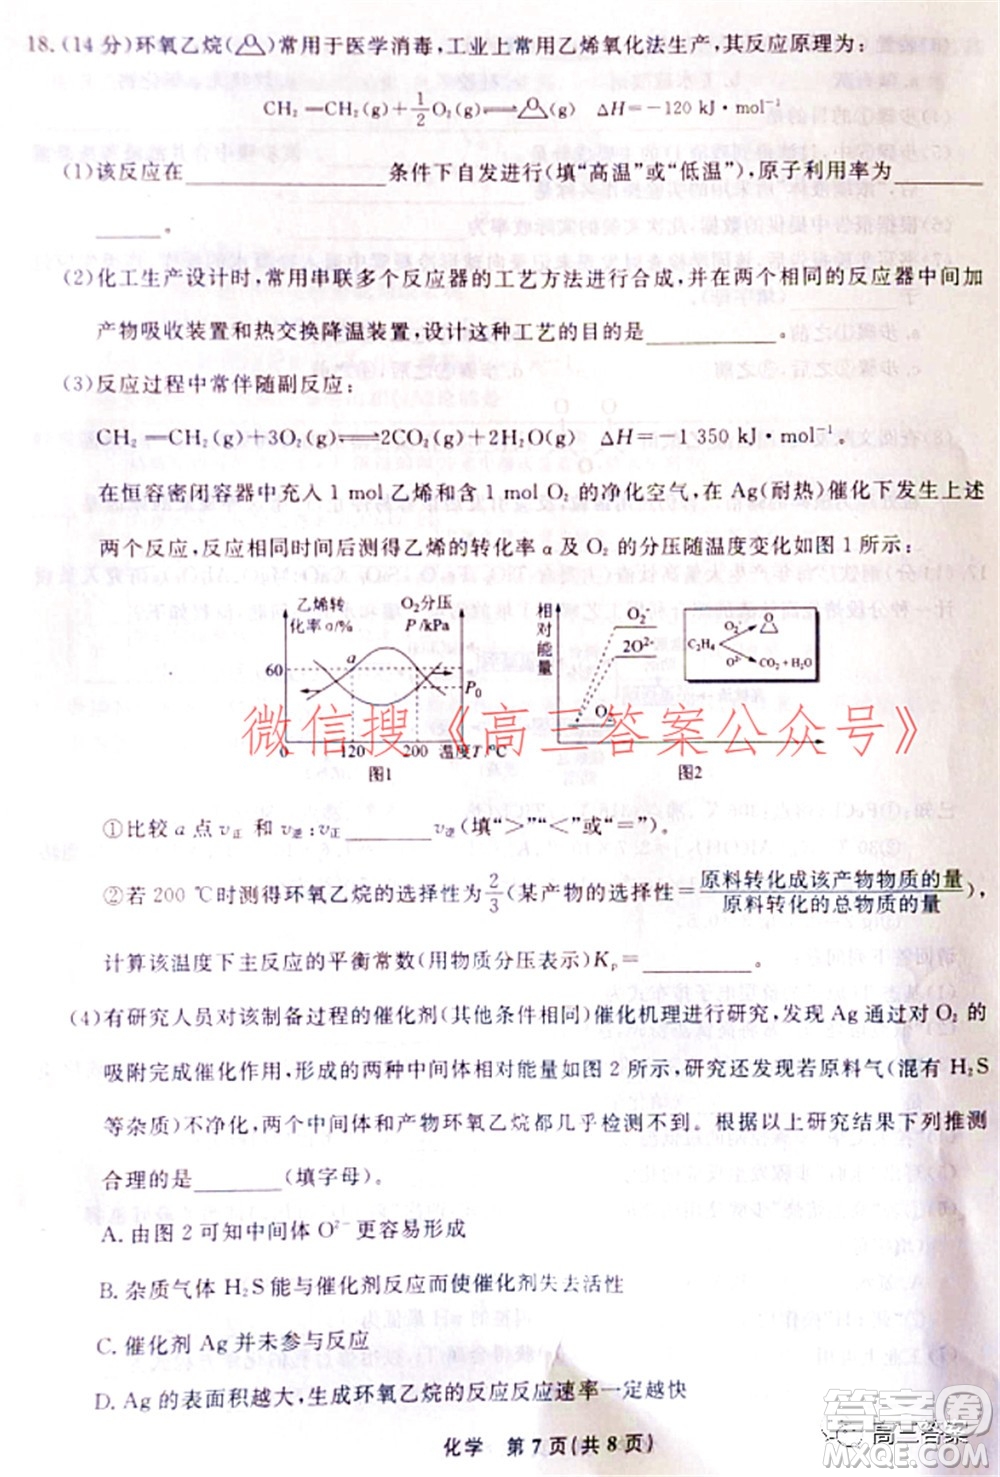 18.(14分)环氧乙烷( O )常用于医学消毒,工业上常用乙烯氧化法生产,其反应原理为:
CH₂═CH₂(g)+1/2 O₂(g)⇌ O (g) ΔH=−120 kJ·mol⁻¹
(1)该反应在__________条件下自发进行(填“高温”或“低温”),原子利用率为
________。
(2)化工生产设计时,常用串联多个反应器的工艺方法进行合成,并在两个相同的反应器中间加
产物吸收装置和热交换降温装置,设计这种工艺的目的是________。
(3)反应过程中常伴随副反应:
CH₂═CH₂(g)+3O₂(g)⇌2CO₂(g)+2H₂O(g) ΔH=−1 350 kJ·mol⁻¹
在恒容密闭容器中充入 1 mol乙烯和含 1 mol O₂ 的净化空气,在 Ag(耐热)催化下发生上述
两个反应,反应相同时间后测得乙烯的转化率 α 及 O₂ 的分压随温度变化如图 1 所示:
乙烯转化率α/%
O₂分压P/kPa
60
a
P₀
0 120 200 温度T/℃
图1
相对能量
O₂⁻
2O²⁻
O₂
C₂H₄
O₂⁻ O
O²⁻ CO₂+H₂O
图2
微信搜《高三答案公众号》
①比较 a 点 v正 和 v逆:v正______v逆(填“>”“<”或“=”)。
②若 200 ℃时测得环氧乙烷的选择性为 2/3 (某产物的选择性=原料转化成该产物物质的量/原料转化的总物质的量),
计算该温度下主反应的平衡常数(用物质分压表示)Kp=________。
(4)有研究人员对该制备过程的催化剂(其他条件相同)催化机理进行研究,发现 Ag 通过对 O₂ 的
吸附完成催化作用,形成的两种中间体相对能量如图 2 所示,研究还发现若原料气(混有 H₂S
等杂质)不净化,两个中间体和产物环氧乙烷都几乎检测不到。根据以上研究结果下列推测
合理的是______(填字母)。
A. 由图 2 可知中间体 O²⁻ 更容易形成
B. 杂质气体 H₂S 能与催化剂反应而使催化剂失去活性
C. 催化剂 Ag 并未参与反应
D. Ag 的表面积越大,生成环氧乙烷的反应反应速率一定越快
化学 第 7 页(共 8 页)
高三答案
答案圈
MXQE.COM